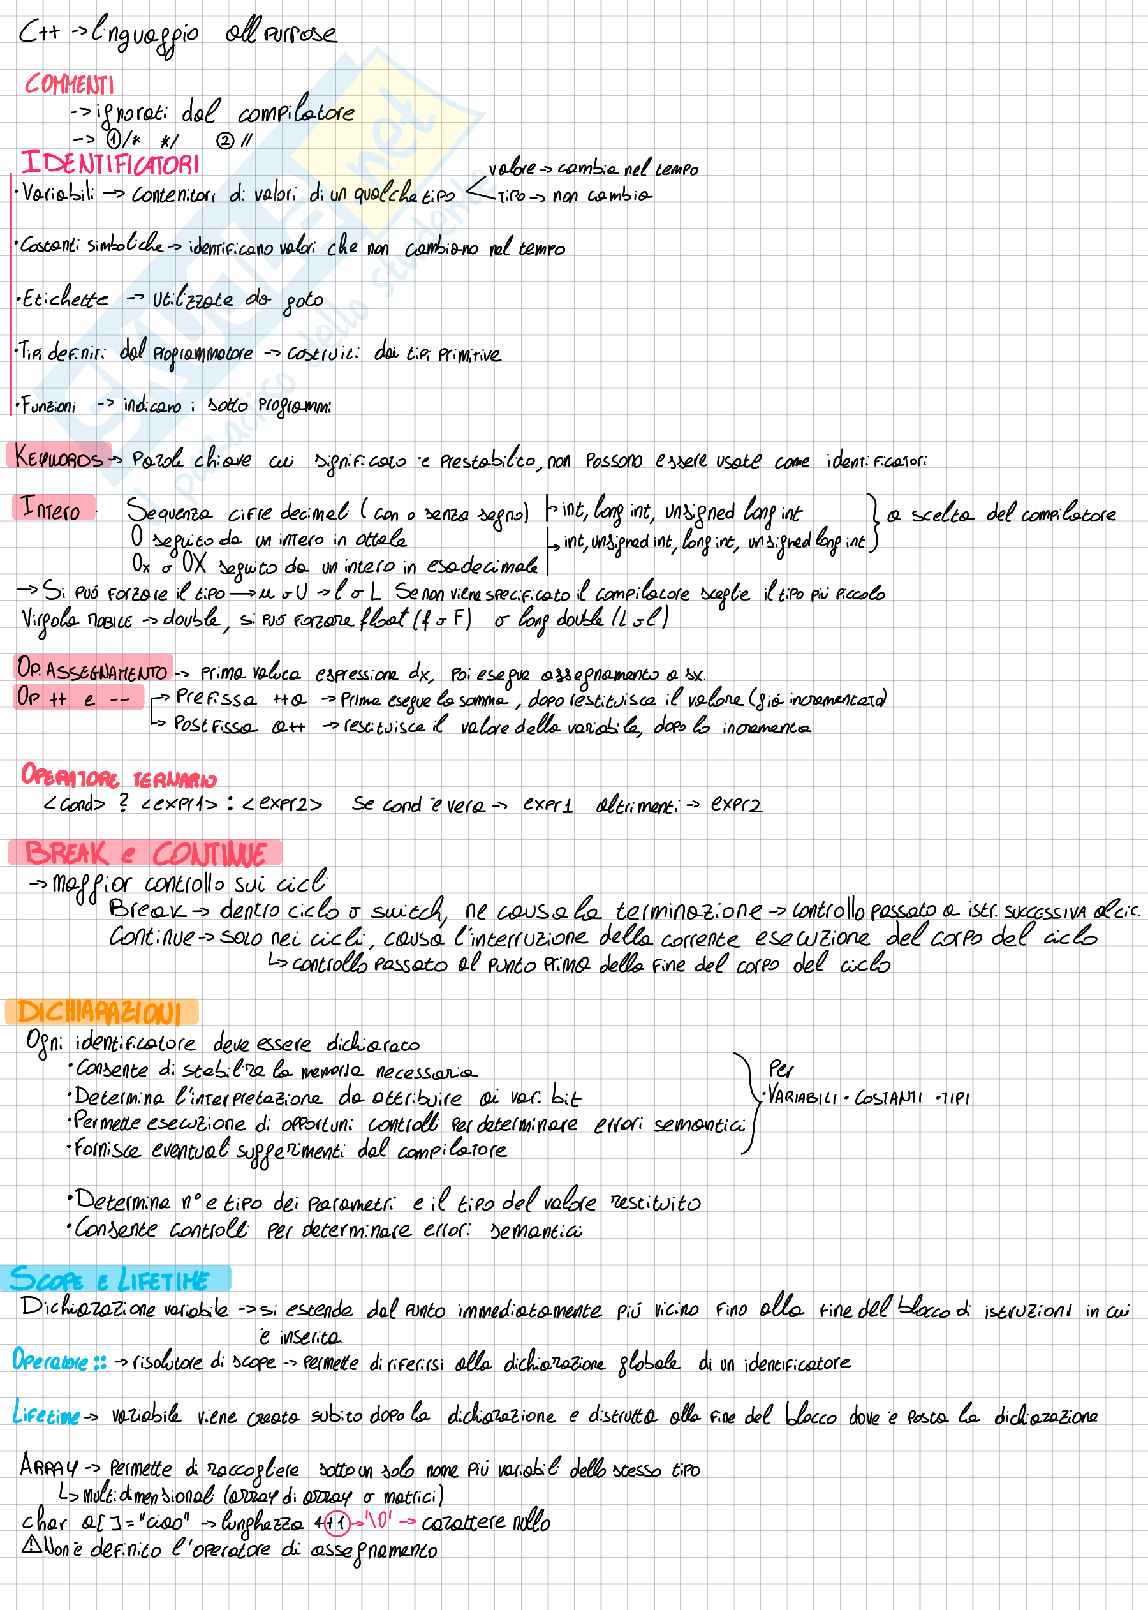 C++ → linguaggio all purpose
COMMENTI
→ ignorati dal compilatore
→ ① /* */ ② //
IDENTIFICATORI
valore → cambia nel tempo
• Variabili → contenitori di valori di un qualche tipo
TIPO → non cambia
• Costanti simboliche → identificano valori che non cambiano nel tempo
• Etichette → utilizzate da goto
• Tipi definiti dal programmatore → costruiti dai tipi primitive
• Funzioni → indicano i sotto programmi
KEYWORDS → Parole chiave cui significato è prestabilito, non possono essere usate come identificatori
Intero Sequenza cifre decimal (con o senza segno) → int, long int, unsigned long int
0 seguito da un intero in ottale → int, unsigned int, long int, unsigned long int } a scelta del compilatore
0x o 0X seguito da un intero in esadecimale
→ Si può forzare il tipo → u o U → l o L Se non viene specificato il compilatore sceglie il tipo più piccolo
Virgola MOBILE → double, si può forzare float (f o F) o long double (L o l)
OP. ASSEGNAMENTO → prima valuta espressione dx, poi esegue assegnamento a sx.
Op ++ e -- → Prefissa ++a → Prima esegue la somma, dopo restituisce il valore (già incrementato)
↳ Postfissa a++ → restituisce il valore della variabile, dopo lo incrementa
OPERATORE TERNARIO
<cond> ? <expr1> : <expr2> Se cond è vera → expr1 altrimenti → expr2
BREAK e CONTINUE
→ maggior controllo sui cicl
Break → dentro ciclo o switch, ne causa la terminazione → controllo passato a istr. SUCCESSIVA al cic.
Continue → solo nei cicli, causa l'interruzione della corrente esecuzione del corpo del ciclo
↳ controllo passato al punto prima della fine del corpo del ciclo
DICHIARAZIONI
Ogni identificatore deve essere dichiarato
• Consente di stabilire la memoria necessaria
• Determina l'interpretazione da attribuire ai var. bit
• Permette esecuzione di opportuni controlli per determinare errori semantici
• Fornisce eventual suggerimenti dal compilatore
Per
• VARIABILI • COSTANTI • TIPI
• Determina n° e tipo dei parametri e il tipo del valore restituito
• Consente controlli per determinare errori semantici
SCOPE E LIFETIME
Dichiarazione variabile → si estende dal punto immediatamente più vicino fino alla fine del blocco di istruzioni in cui
è inserita
Operatore :: → risolutore di scope → permette di riferirsi alla dichiarazione globale di un identificatore
Lifetime → variabile viene creata subito dopo la dichiarazione e distrutta alla fine del blocco dove è posta la dichiarazione
ARRAY → permette di raccogliere sotto un solo nome più variabil dello stesso tipo
↳ multidimensional (array di array o matrici)
char a[]="ciao" → lunghezza 4+1 → '\0' → carattere nullo
⚠ Non è definito l'operatore di assegnamento
SKUOLA.net
il paradiso dello studente